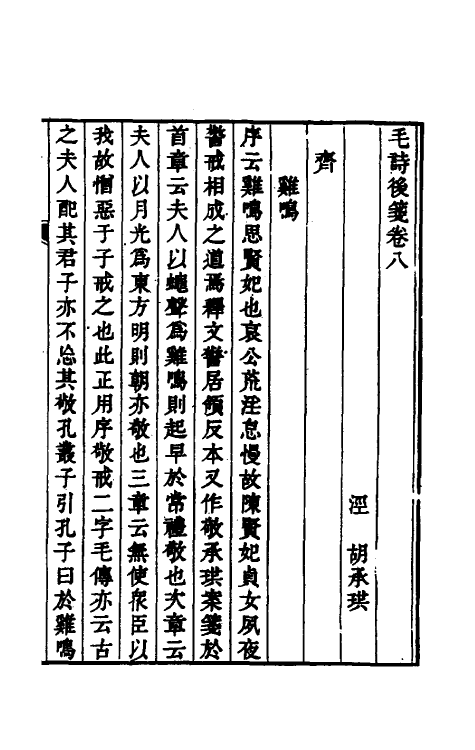 毛詩後箋卷八
涇 胡承珙
齊
雞鳴
序云雞鳴思賢妃也哀公荒淫怠慢故陳賢妃貞女夙夜
警戒相成之道焉釋文警居領反本又作敬承珙案箋於
首章云夫人以蠅聲爲雞鳴則起早於常禮敬也次章云
夫人以月光爲東方明則朝亦敬也三章云無使衆臣以
我故憎惡于子戒之也此正用序敬戒二字毛傳亦云古
之夫人配其君子亦不怠其敬孔叢子引孔子曰於雞鳴